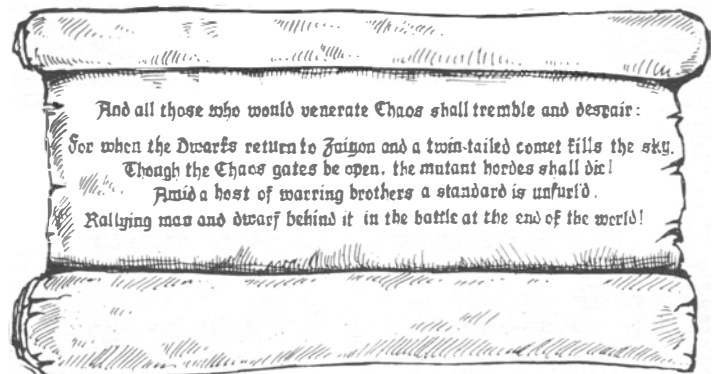 And all those who would venerate Chaos shall tremble and despair:
For when the Dwarfs return to Zaiyon and a twin-tailed comet fills the sky.
Though the Chaos gates be open, the mutant hordes shall die!
Amid a host of warring brothers a standard is unfurl'd.
Rallying man and dwarf behind it in the battle at the end of the world!